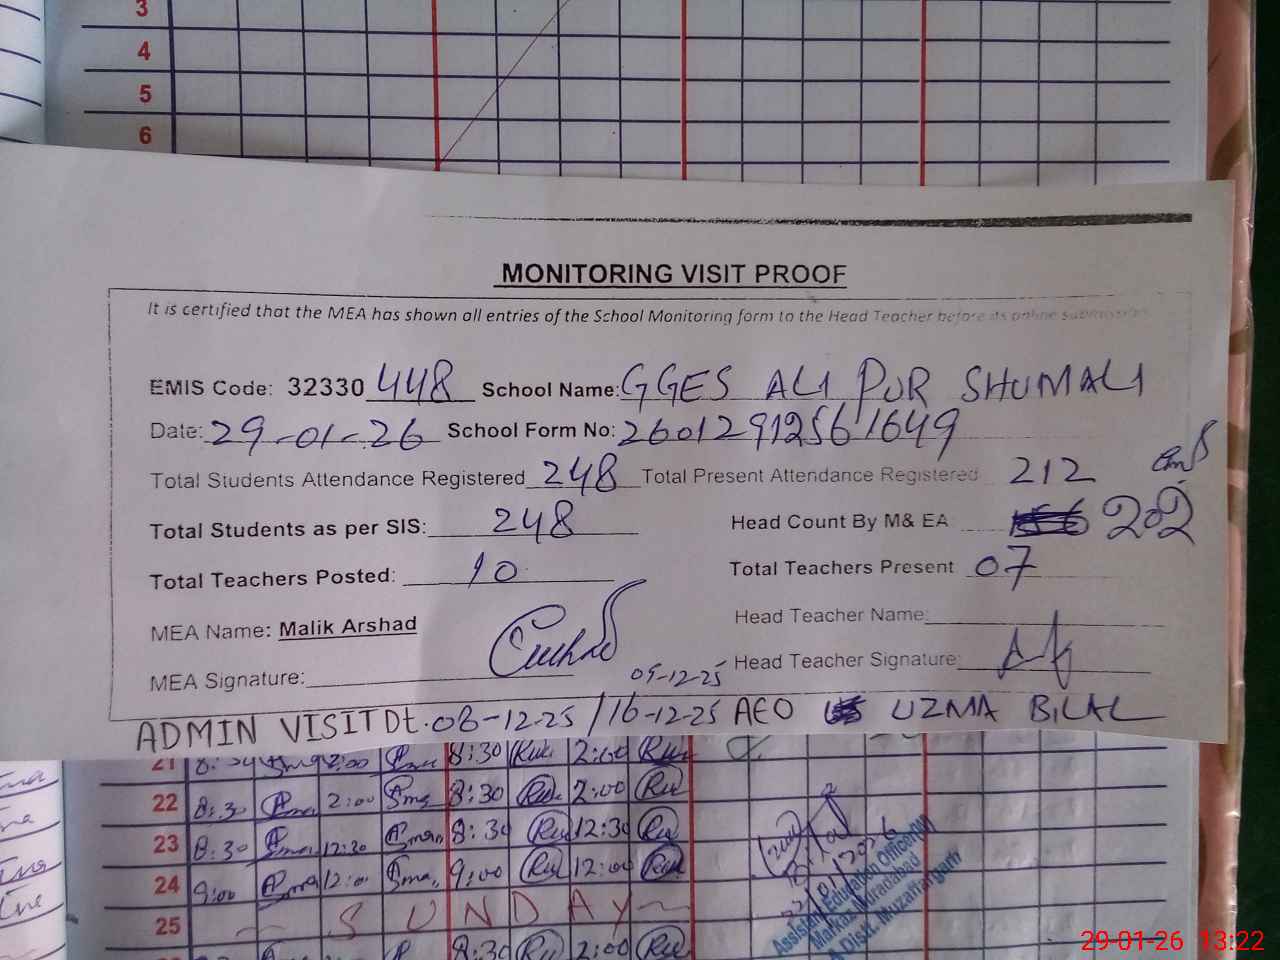 3
4
5
6
MONITORING VISIT PROOF
It is certified that the MEA has shown all entries of the School Monitoring form to the Head Teacher before its online submission
EMIS Code: 32330 448 School Name: GGES ALI PUR SHUMALI
Date: 29-01-26 School Form No: 26012912561649
Total Students Attendance Registered 248 Total Present Attendance Registered 212
Total Students as per SIS: 248 Head Count By M& EA 202
Total Teachers Posted: 10 Total Teachers Present 07
MEA Name: Malik Arshad Head Teacher Name:
MEA Signature: Head Teacher Signature:
05-12-25
ADMIN VISIT Dt. 08-12-25 / 16-12-25 AEO UZMA BILAL
21 8:30 2:00 8:30 2:00
22 8:30 2:00 8:30 2:00
23 8:30 12:30 8:30 12:30
24 9:00 12:00 9:00 12:00
25 SUNDAY
8:30 2:00
Assistant Education Officer
Markaz Muradabad
Distt. Muzaffargarh
29-01-26 13:22